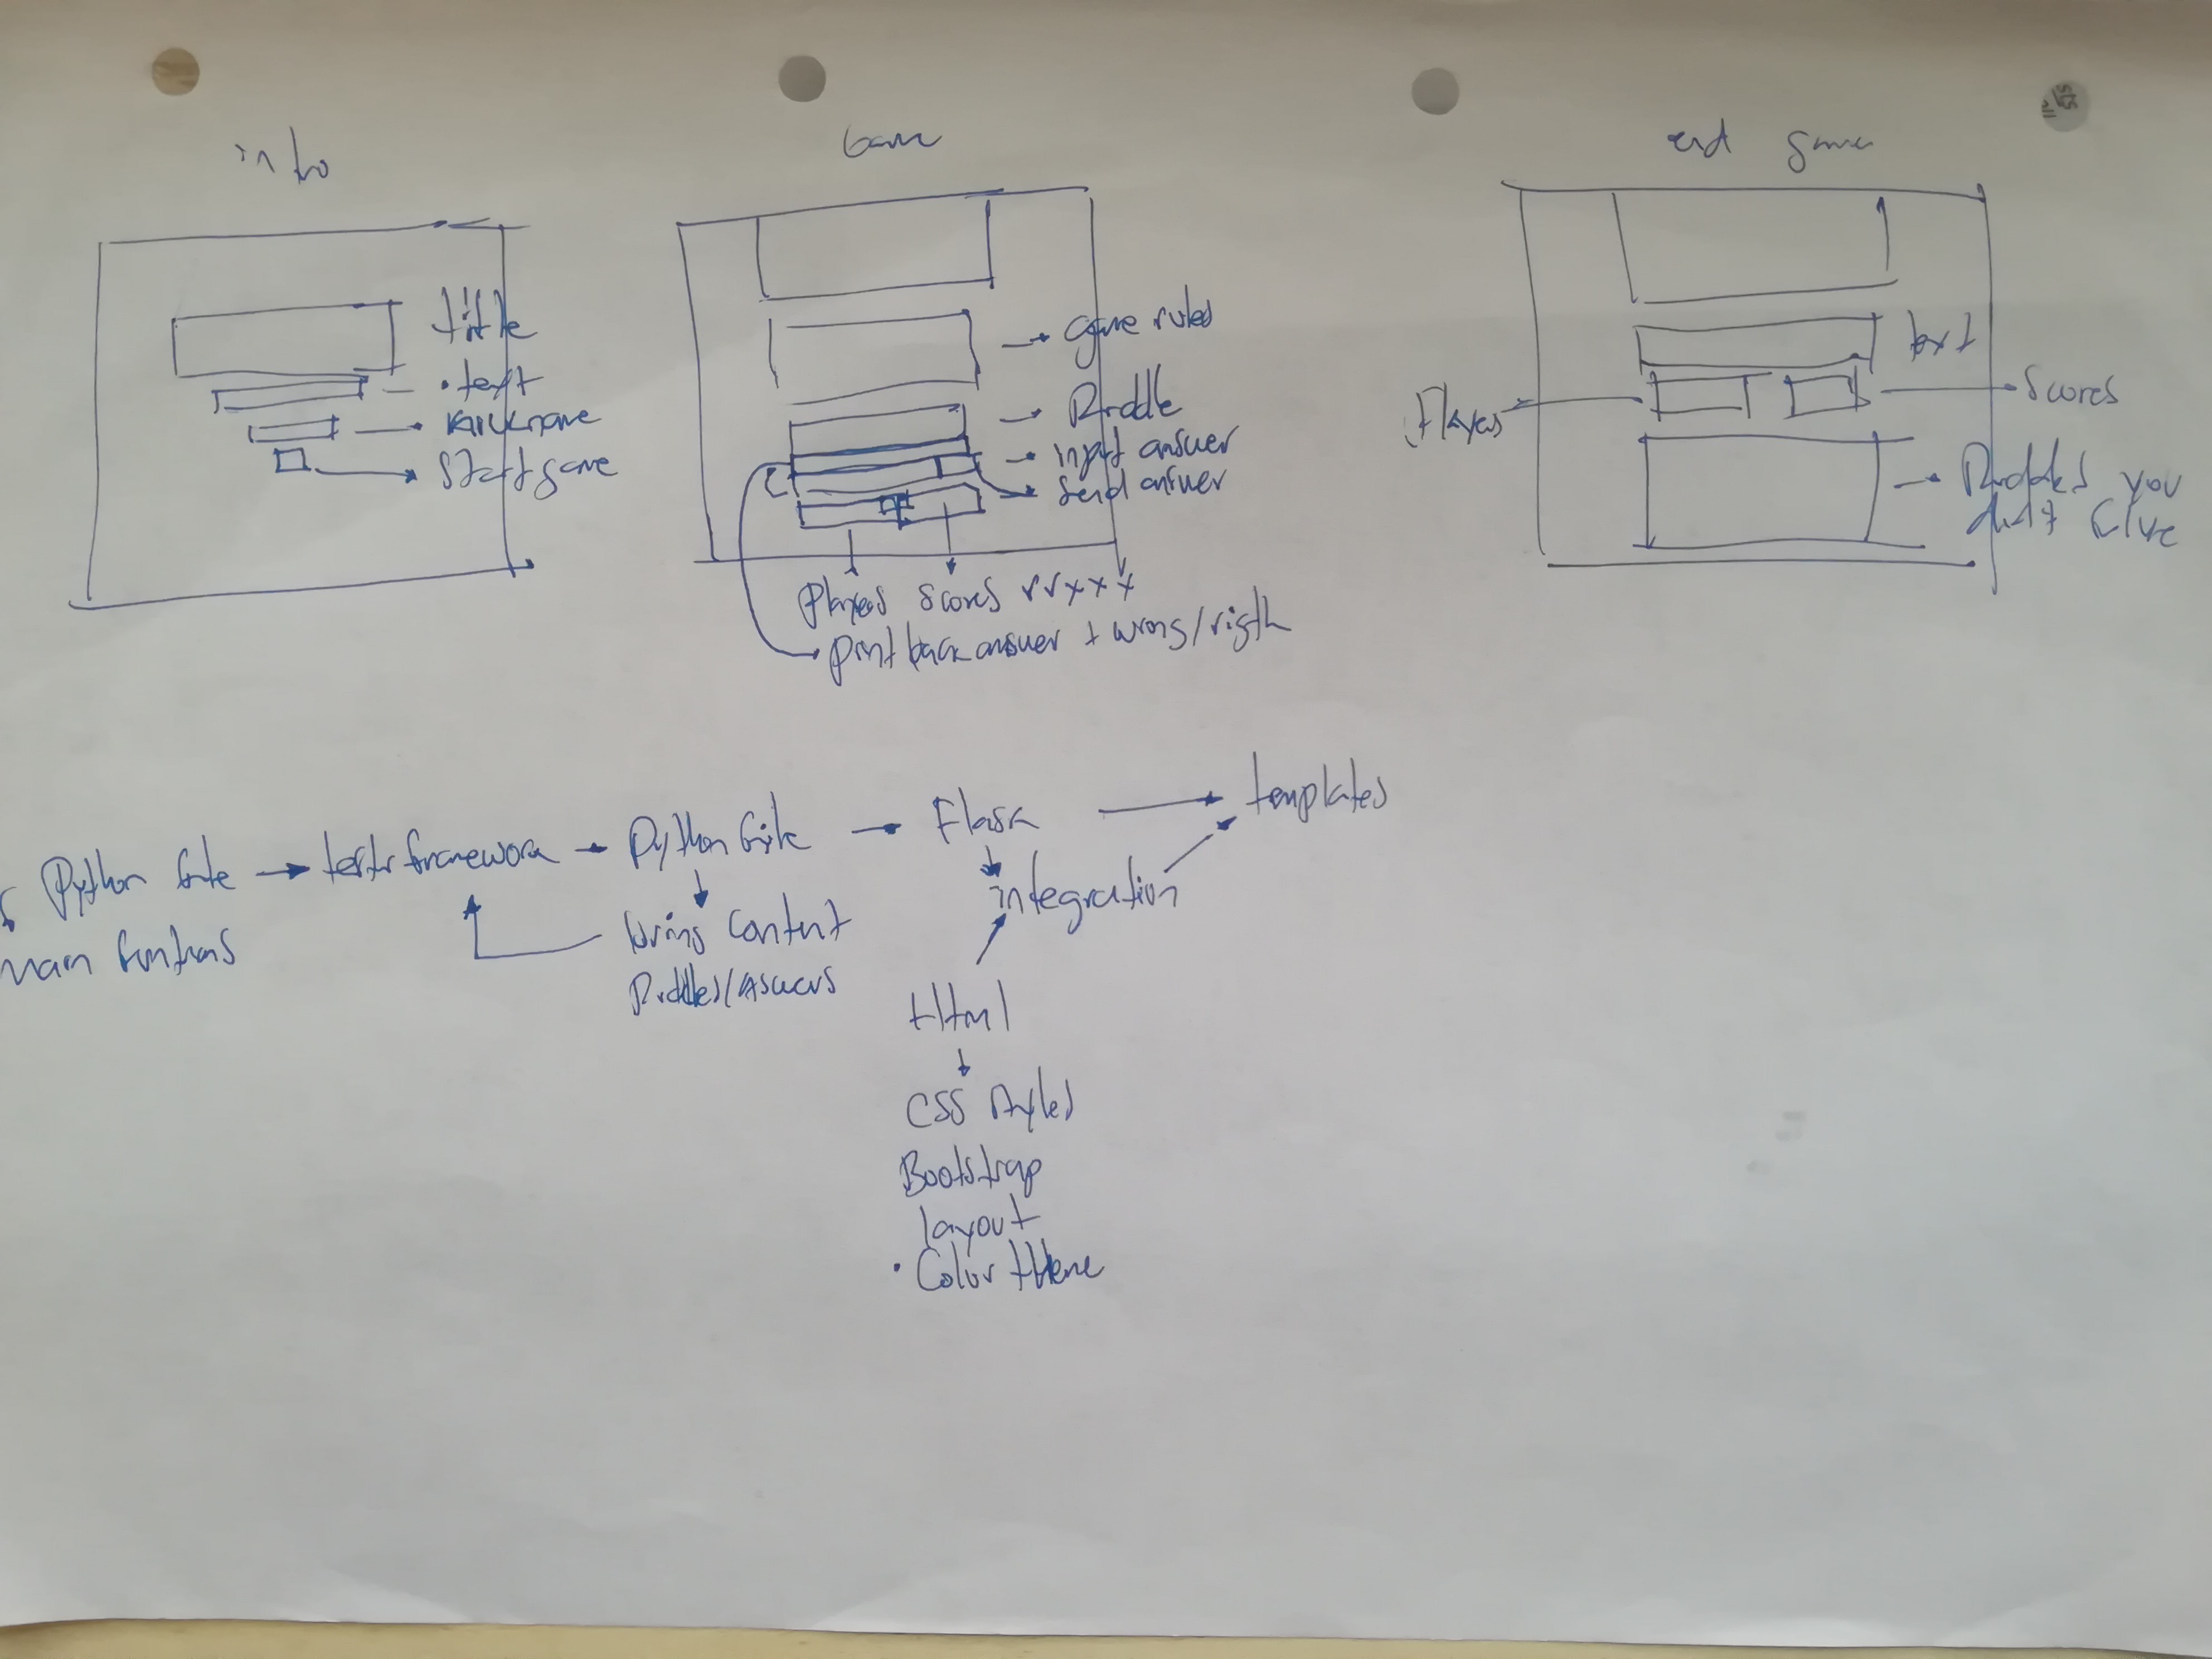 intro
Game
end game
title
text
nickname
Start game
Game rules
Riddle
input answer
Send answer
Players Scores √√xxx
print back answer + wrong/rigth
text
Players
Scores
Riddles you
didn't
Python file → tests framework → Python file → Flask → templates
main funtions
bring content
Riddles/
integration
Html
CSS Styles
Bootstrap
layout
• Color theme